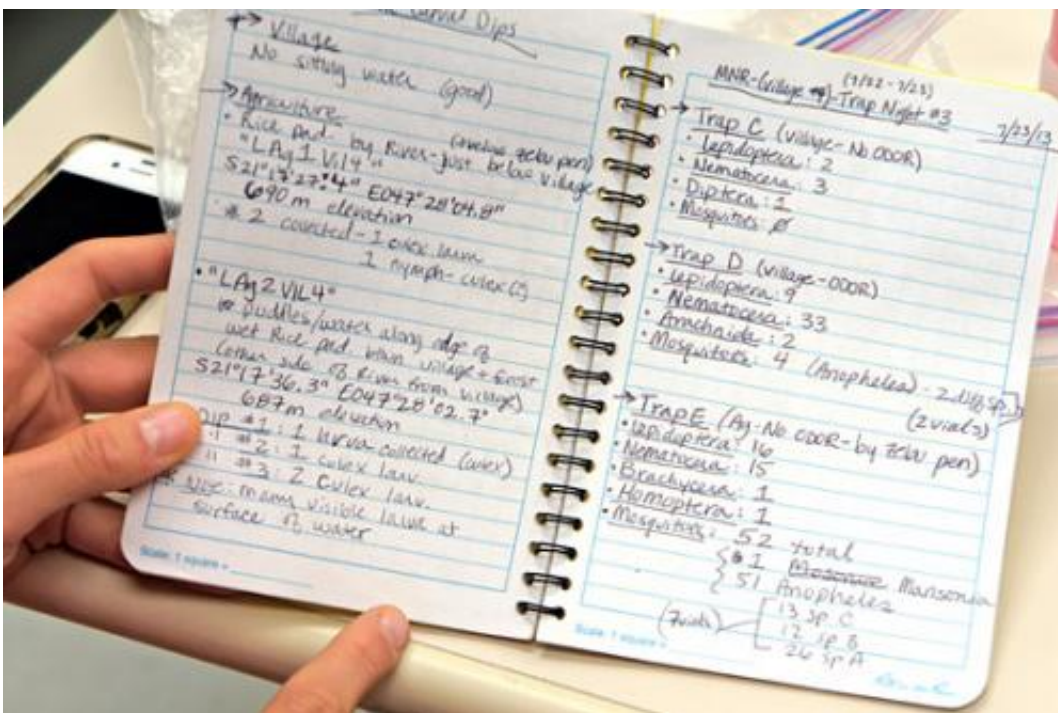 Larval Dips
→ Village
No sitting water (good)
→ Agriculture
• Rice pad. by River - just below village
(below zebu pen)
"LAg 1 Vil4"
S21°17'27.4" E047°28'04.8"
690 m elevation
* 2 collected - 1 culex larva
1 nymph - culex (?)
• "LAg 2 VIL4"
puddles/water along edge of
wet Rice pad. btwn village + forest
(other side of River from village)
S21°17'36.3" E047°28'02.7"
687m elevation
Dip #1: 1 larva collected (culex)
" #2: 1 culex larv.
" #3: 2 culex larv.
many visible larva at
surface of water
Scale: 1 square =
(7/22 - 7/23)
MNR-(village #4)-Trap Night #3
7/23/13
→ Trap C (village - No ODOR)
• Lepidoptera: 2
• Nematocera: 3
• Diptera: 1
• Mosquitos: ø
→ Trap D (village - ODOR)
• Lepidoptera: 9
• Nematocera: 33
• Arachnida: 2
• Mosquitos: 4 (Anopheles) - 2 diff sp.
(2 vials)
→ Trap E (Ag - No ODOR - by zebu pen)
• Lepidoptera: 16
• Nematocera: 15
• Brachycera: 1
• Homoptera: 1
• Mosquitos: 52 total
1 Mansonia
51 Anopheles
(7 vials) 13 sp C
12 sp B
26 sp A
Scale: 1 square =